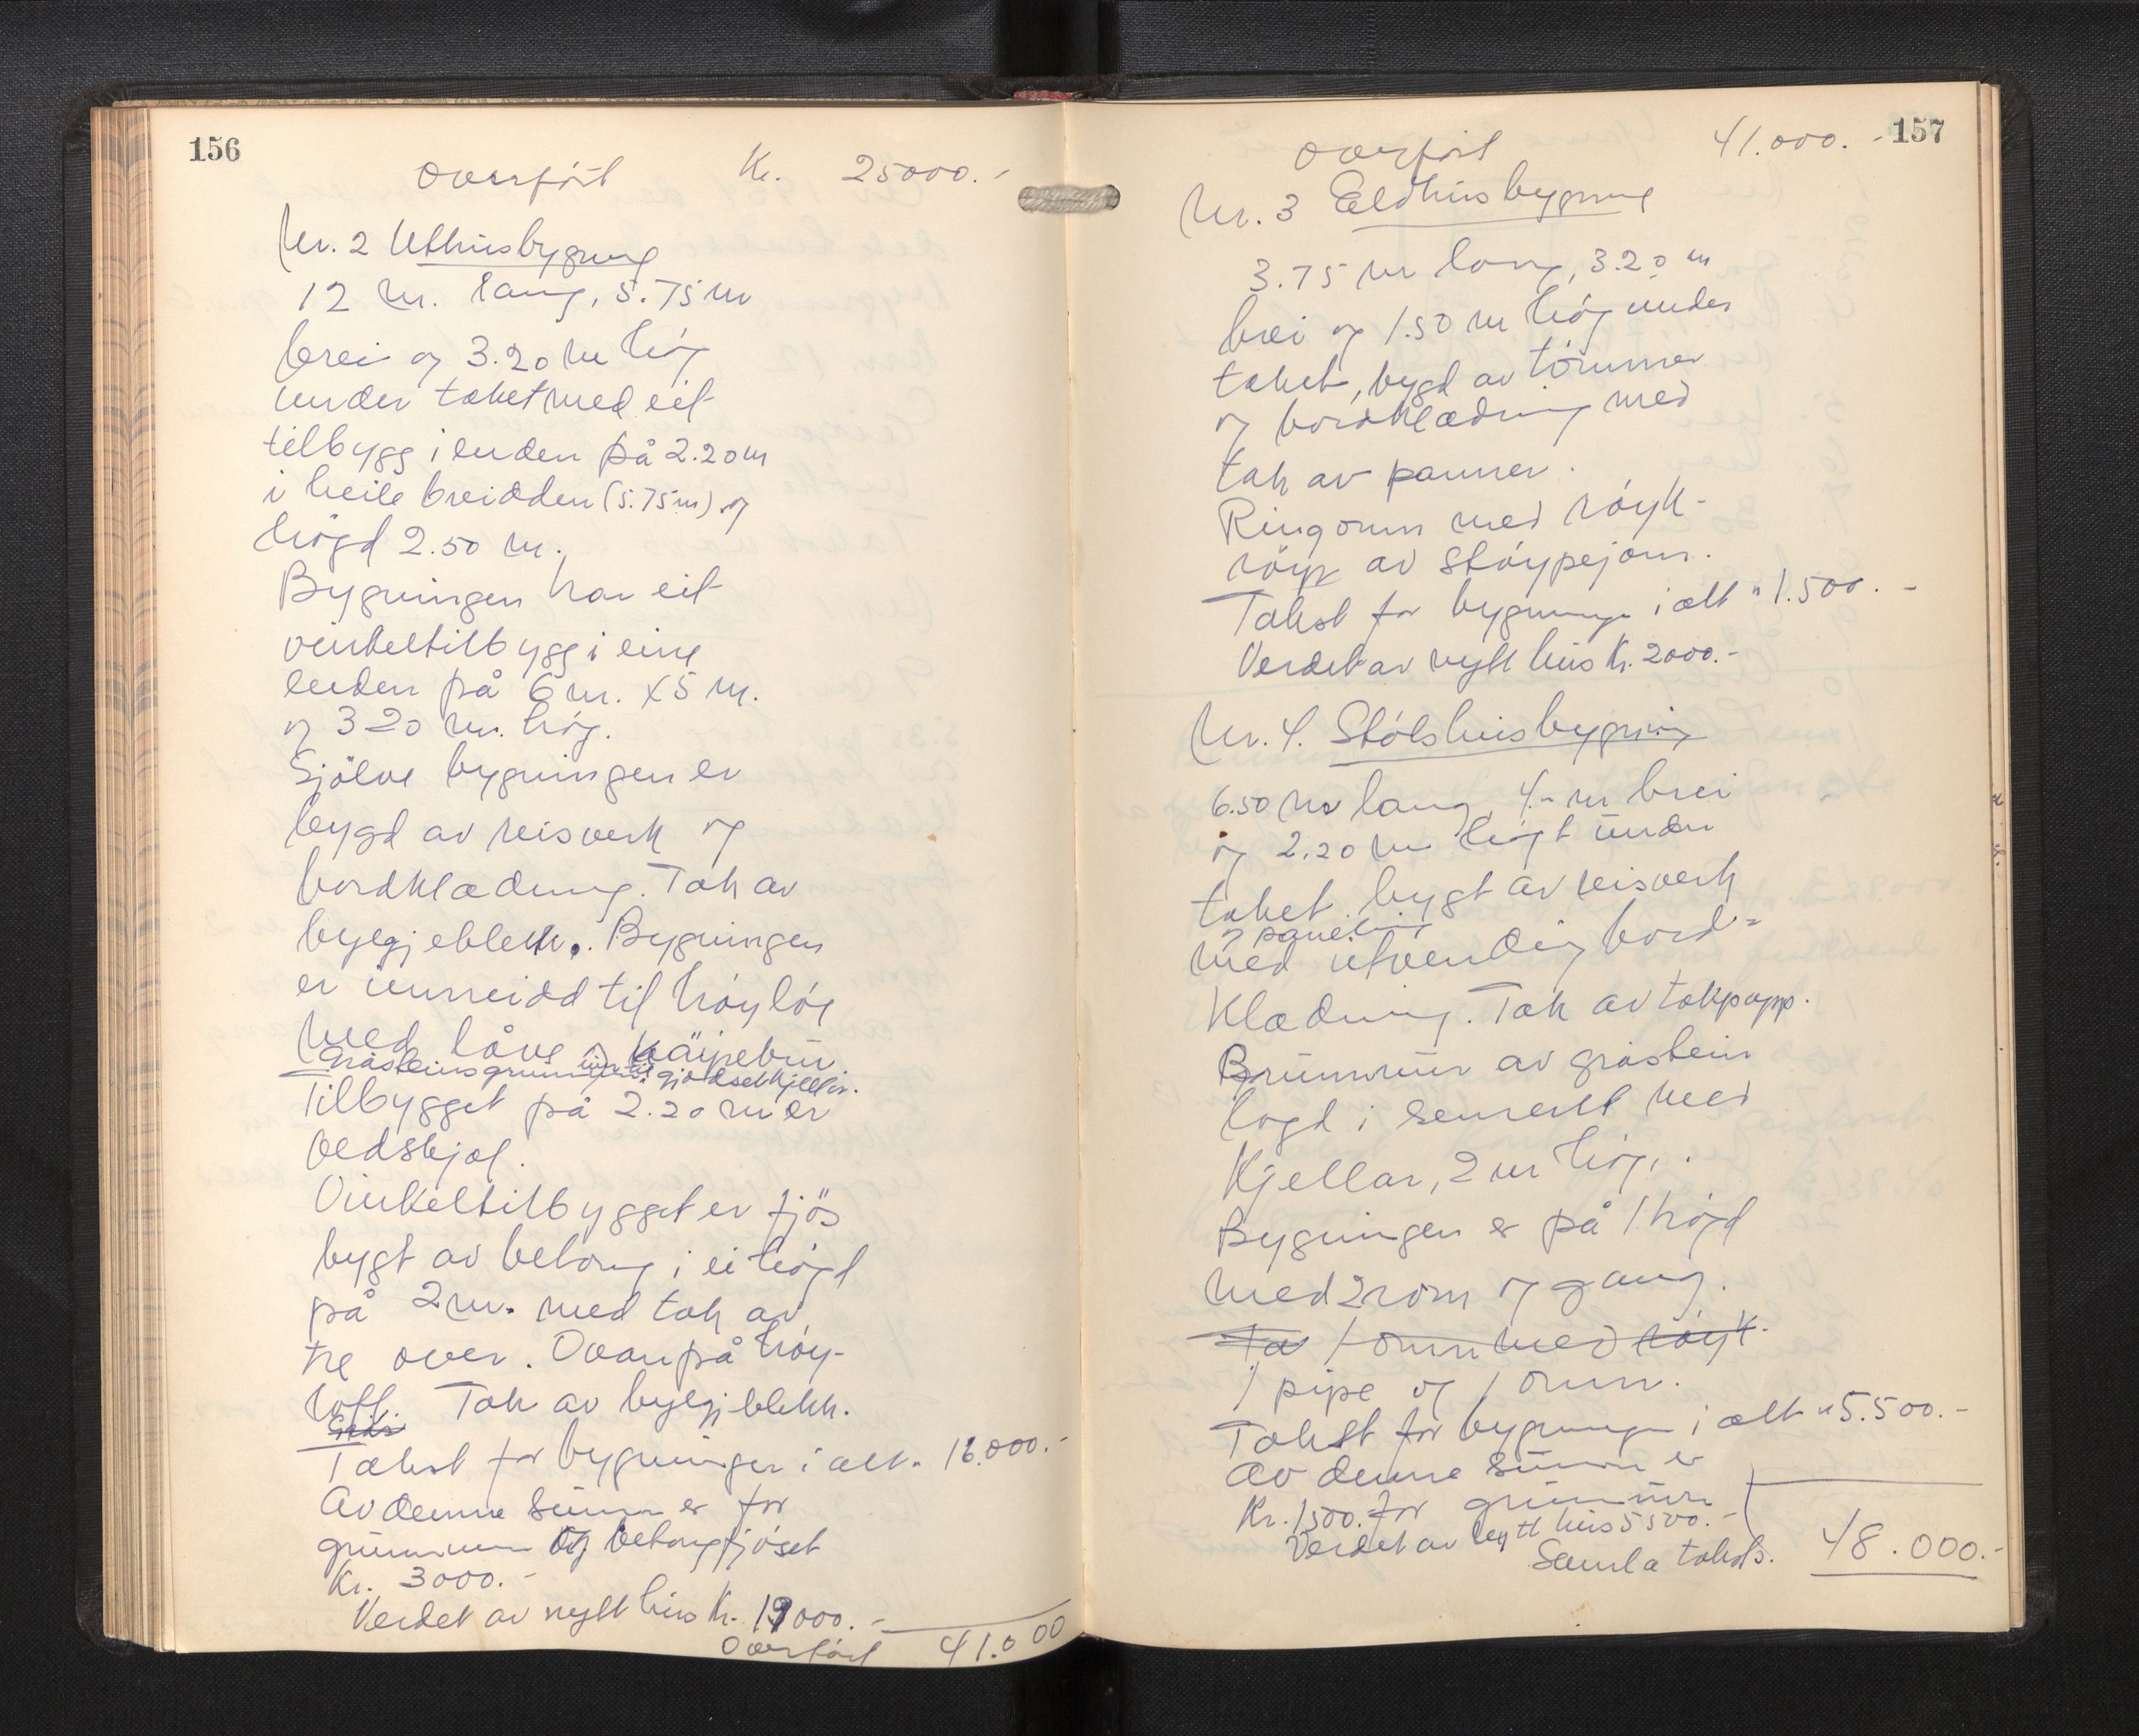 156
Overført Kr. 25000.-
Nr. 2 Uthusbygning
12 m. lang, 5.75 m
brei og 3.20 m høg
under taket med eit
tilbygg i enden på 2.20 m
i heile breidden (5.75 m) og
høgd 2.50 m.
Bygningen har eit
vinkeltilbygg i eine
enden på 6 m. x 5 m.
og 3 20 m. høg.
Sjölve bygningen er
bygd av reisverk og
bordklædning. Tak av
bylgjeblekk. Bygningen
er innreidd til høyløe
med låve og
Gråsteinsgrunnmur til gjødselkjellar.
Tilbygget på 2.20 m er
vedskjol.
Vinkeltilbygget er fjös
bygt av betong i ei høgd
på 2 m. med tak av
tre over. Ovanpå høy-
loft. Tak av bylgjeblekk.
Takst for bygningen i alt " 16.000.-
Av denne summen er for
grunnmur og betongfjøset
Kr. 3000.-
Verdet av nytt hus Kr. 19000.-
Overført 41.000
157
Overført 41.000.-
Nr. 3 Eldhusbygning
3.75 m lang, 3.20 m
brei og 1.50 m høg under
taket, bygd av tømmer
og bordklædning med
tak av panner.
Ringomn med røyk-
røyr av støypejarn.
Takst for bygningen i alt " 1.500.-
Verdet av nytt hus Kr. 2000.-
Nr. 4. Stølshusbygning
6.50 m lang, 4.- m brei
og 2.20 m høgt under
taket bygt av reisverk
og paneling
med utvendig bord=
Klædning. Tak av takpapp.
Grunnmur av gråstein
lagd i sement med
Kjellar, 2 m høg.
Bygningen er på 1 høgd
med 2 rom og gang.
Ta 1 omn med røyk-
1 pipe og 1 omn.
Takst for bygningen i alt " 5.500.-
Av denne summen er
Kr. 1500. for grunnmur
Verdet av nytt hus 5500.-
Samla takst. 48.000.-